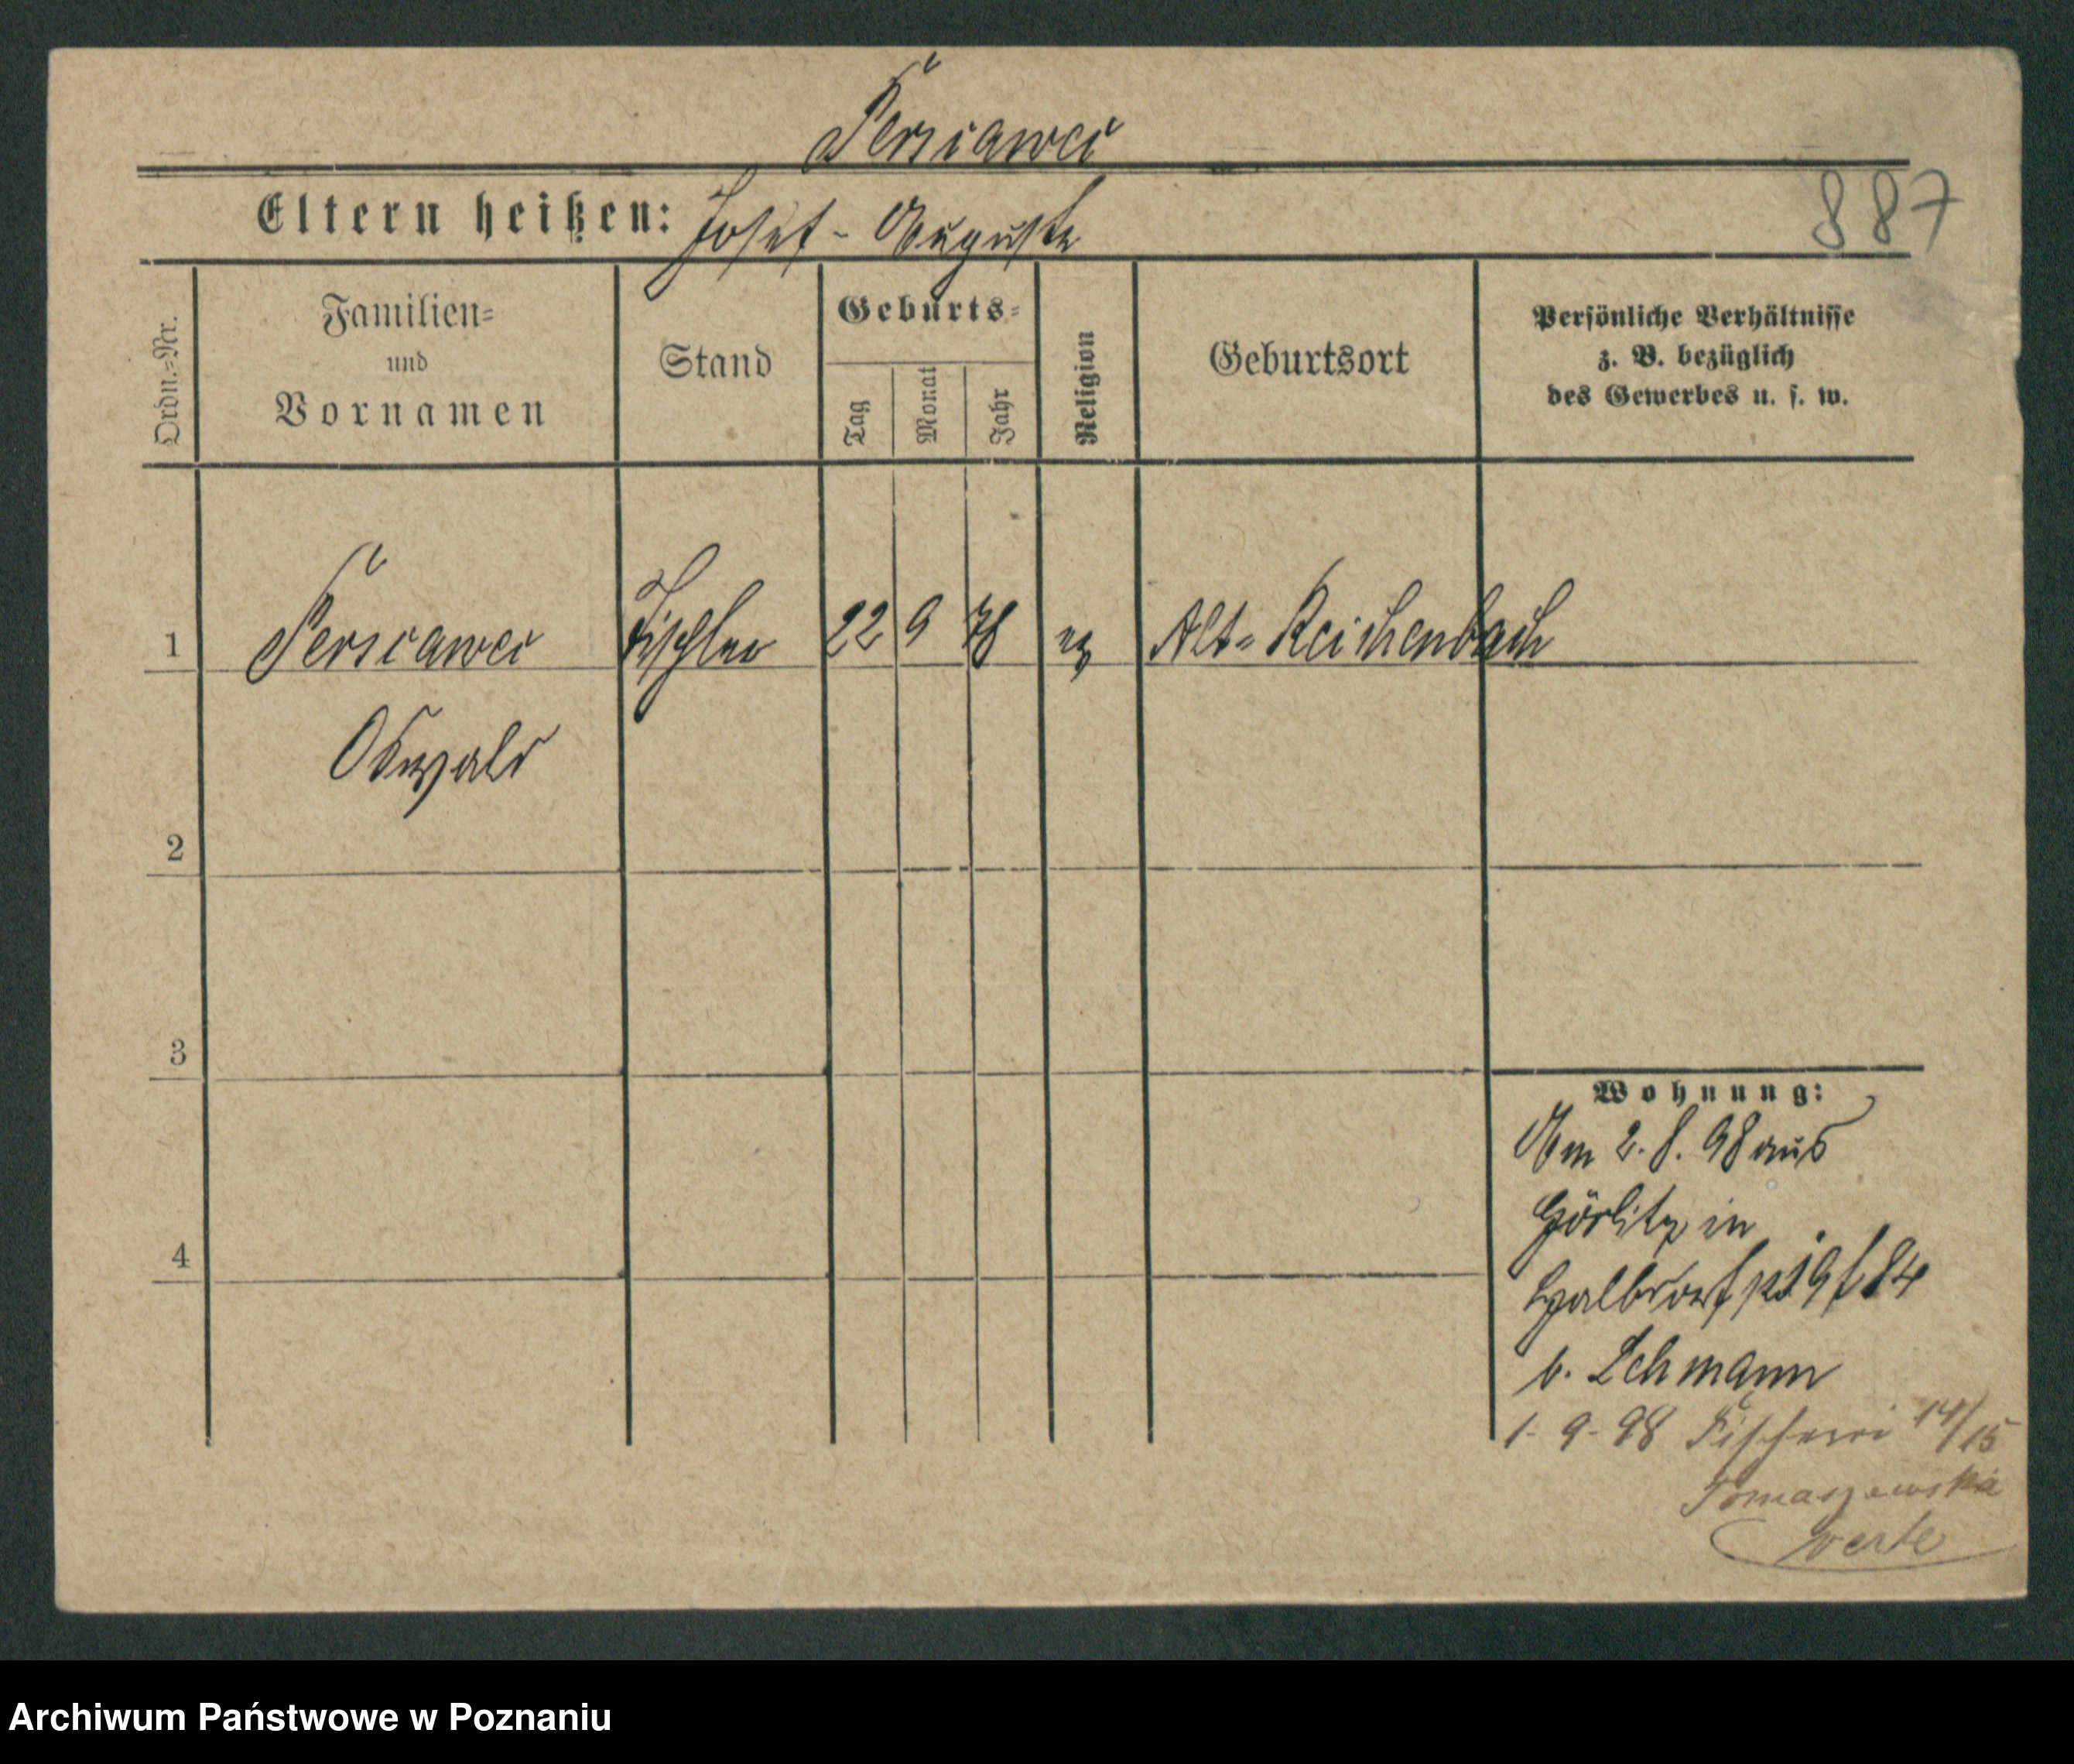 Persicawei
Eltern heißen: Josef - Auguste
887
Ordn.=Nr.
Familien=
und
Vornamen
Stand
Geburts=
Tag
Monat
Jahr
Religion
Geburtsort
Persönliche Verhältnisse
z. B. bezüglich
des Gewerbes u. s. w.
1 Tischler 22 9 78 Alt=Reichenbach
Oswald
2
3
4
Wohnung:
Am 2. 8. 98 aus
Görlitz in
84
b. Lehmann
1- 9- 98 Fischerei 14/15
Tomaszewska
Archiwum Państwowe w Poznaniu